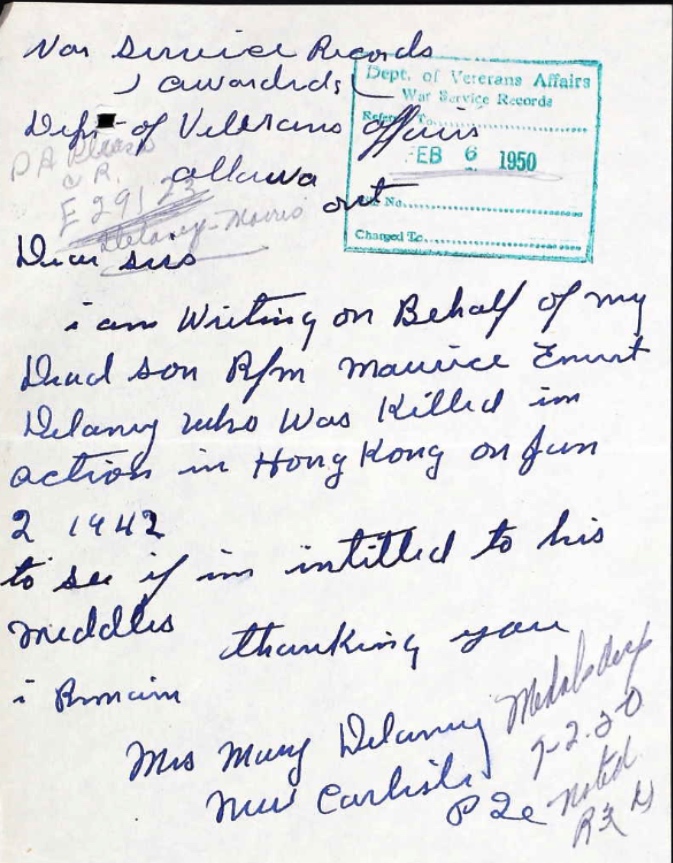 War Service Records
awardeds
Dept of Veterans affairs
ottawa
ont
Dept. of Veterans Affairs
War Service Records
FEB 6 1950
File No.
Charged To
PA Please
E 29123
Delaney-Morris
Dear Sirs
i am Writing on Behalf of my
Dead son Rfm Maurice Ernest
Delaney who Was Killed in
action in Hong Kong on Jun
2 1942
to see if im intitled to his
meddles
thanking you
i Remain
Mrs Mary Delaney
New Carlisle
P 2e
7-2-50
noted